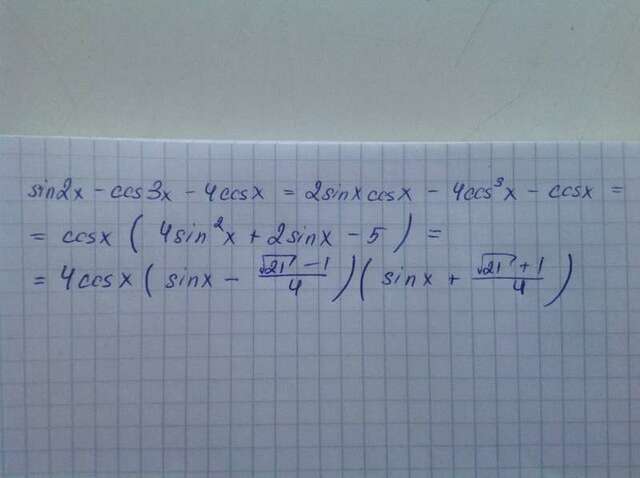 sin2x - cos3x - 4cosx = 2sinxcosx - 4cos³x - cosx =
= cosx ( 4sin²x + 2sinx - 5 ) =
= 4cosx ( sinx - (√21 - 1)/4 ) ( sinx + (√21 + 1)/4 )